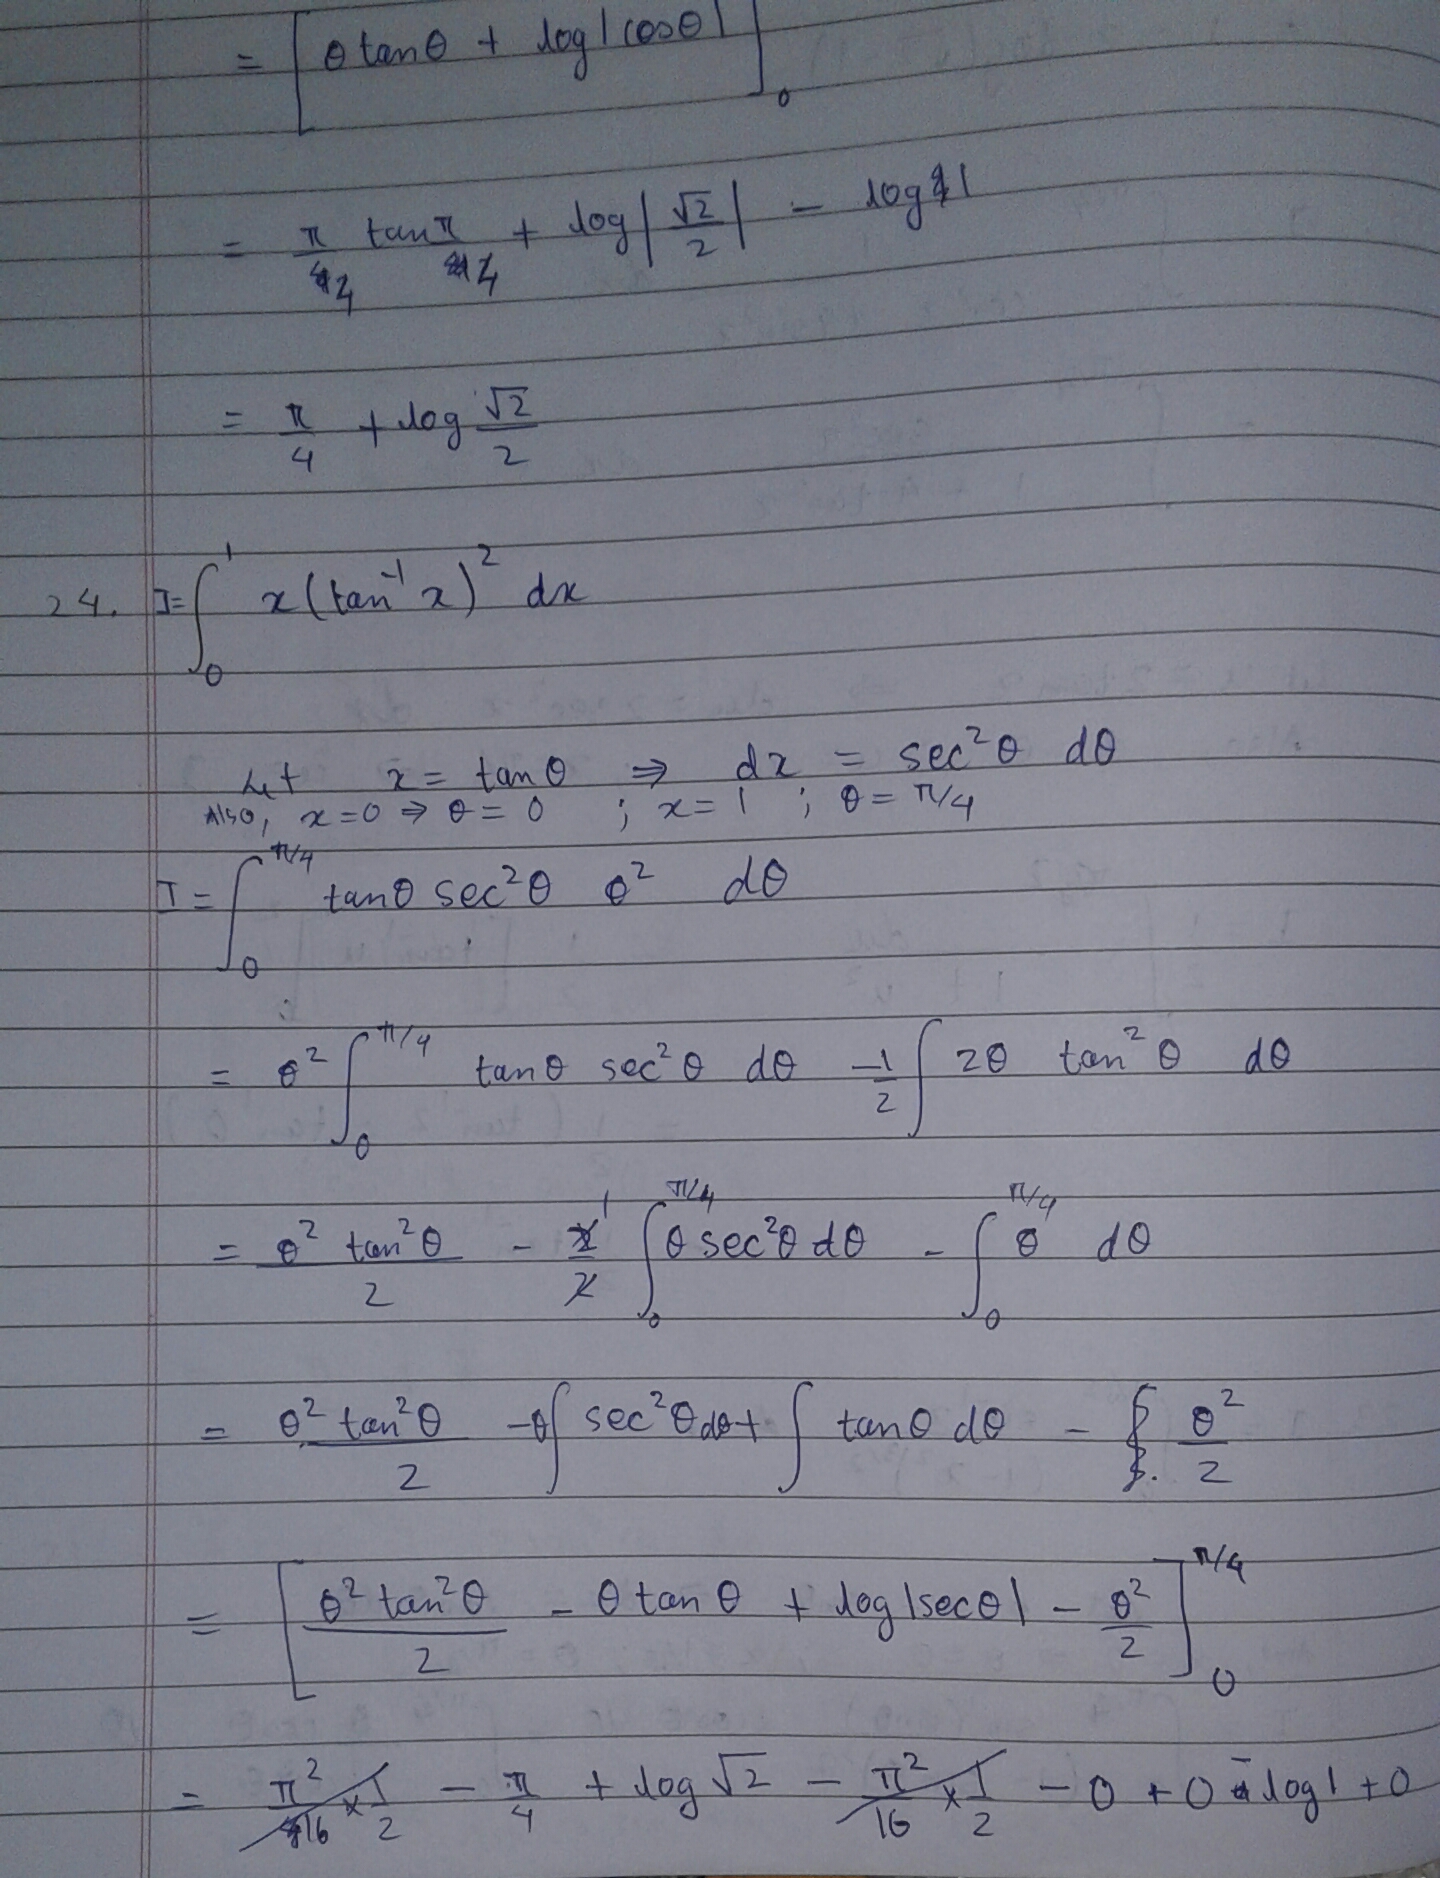 = [θ tanθ + log|cosθ|]₀
= π/4 tan π/4 + log|√2/2| - log 1
= π/4 + log √2/2
24. I = ∫₀¹ x(tan⁻¹x)² dx
Let x = tanθ ⇒ dx = sec²θ dθ
Also, x=0 ⇒ θ = 0 ; x=1 ; θ = π/4
I = ∫₀^(π/4) tanθ sec²θ θ² dθ
= θ² ∫₀^(π/4) tanθ sec²θ dθ - 1/2 ∫ 2θ tan²θ dθ
= θ² tan²θ / 2 - 2/2 ¹ ∫₀^(π/4) θ sec²θ dθ - ∫₀^(π/4) θ dθ
= θ² tan²θ / 2 - θ∫ sec²θ dθ + ∫ tanθ dθ - θ²/2
= [θ² tan²θ / 2 - θ tanθ + log|secθ| - θ²/2]₀^(π/4)
= π²/16 × 1/2 - π/4 + log√2 - π²/16 × 1/2 - 0 + 0 - log1 + 0